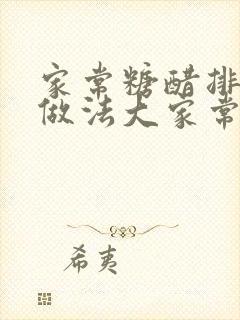 家常糖醋排
做法大家常
希夷